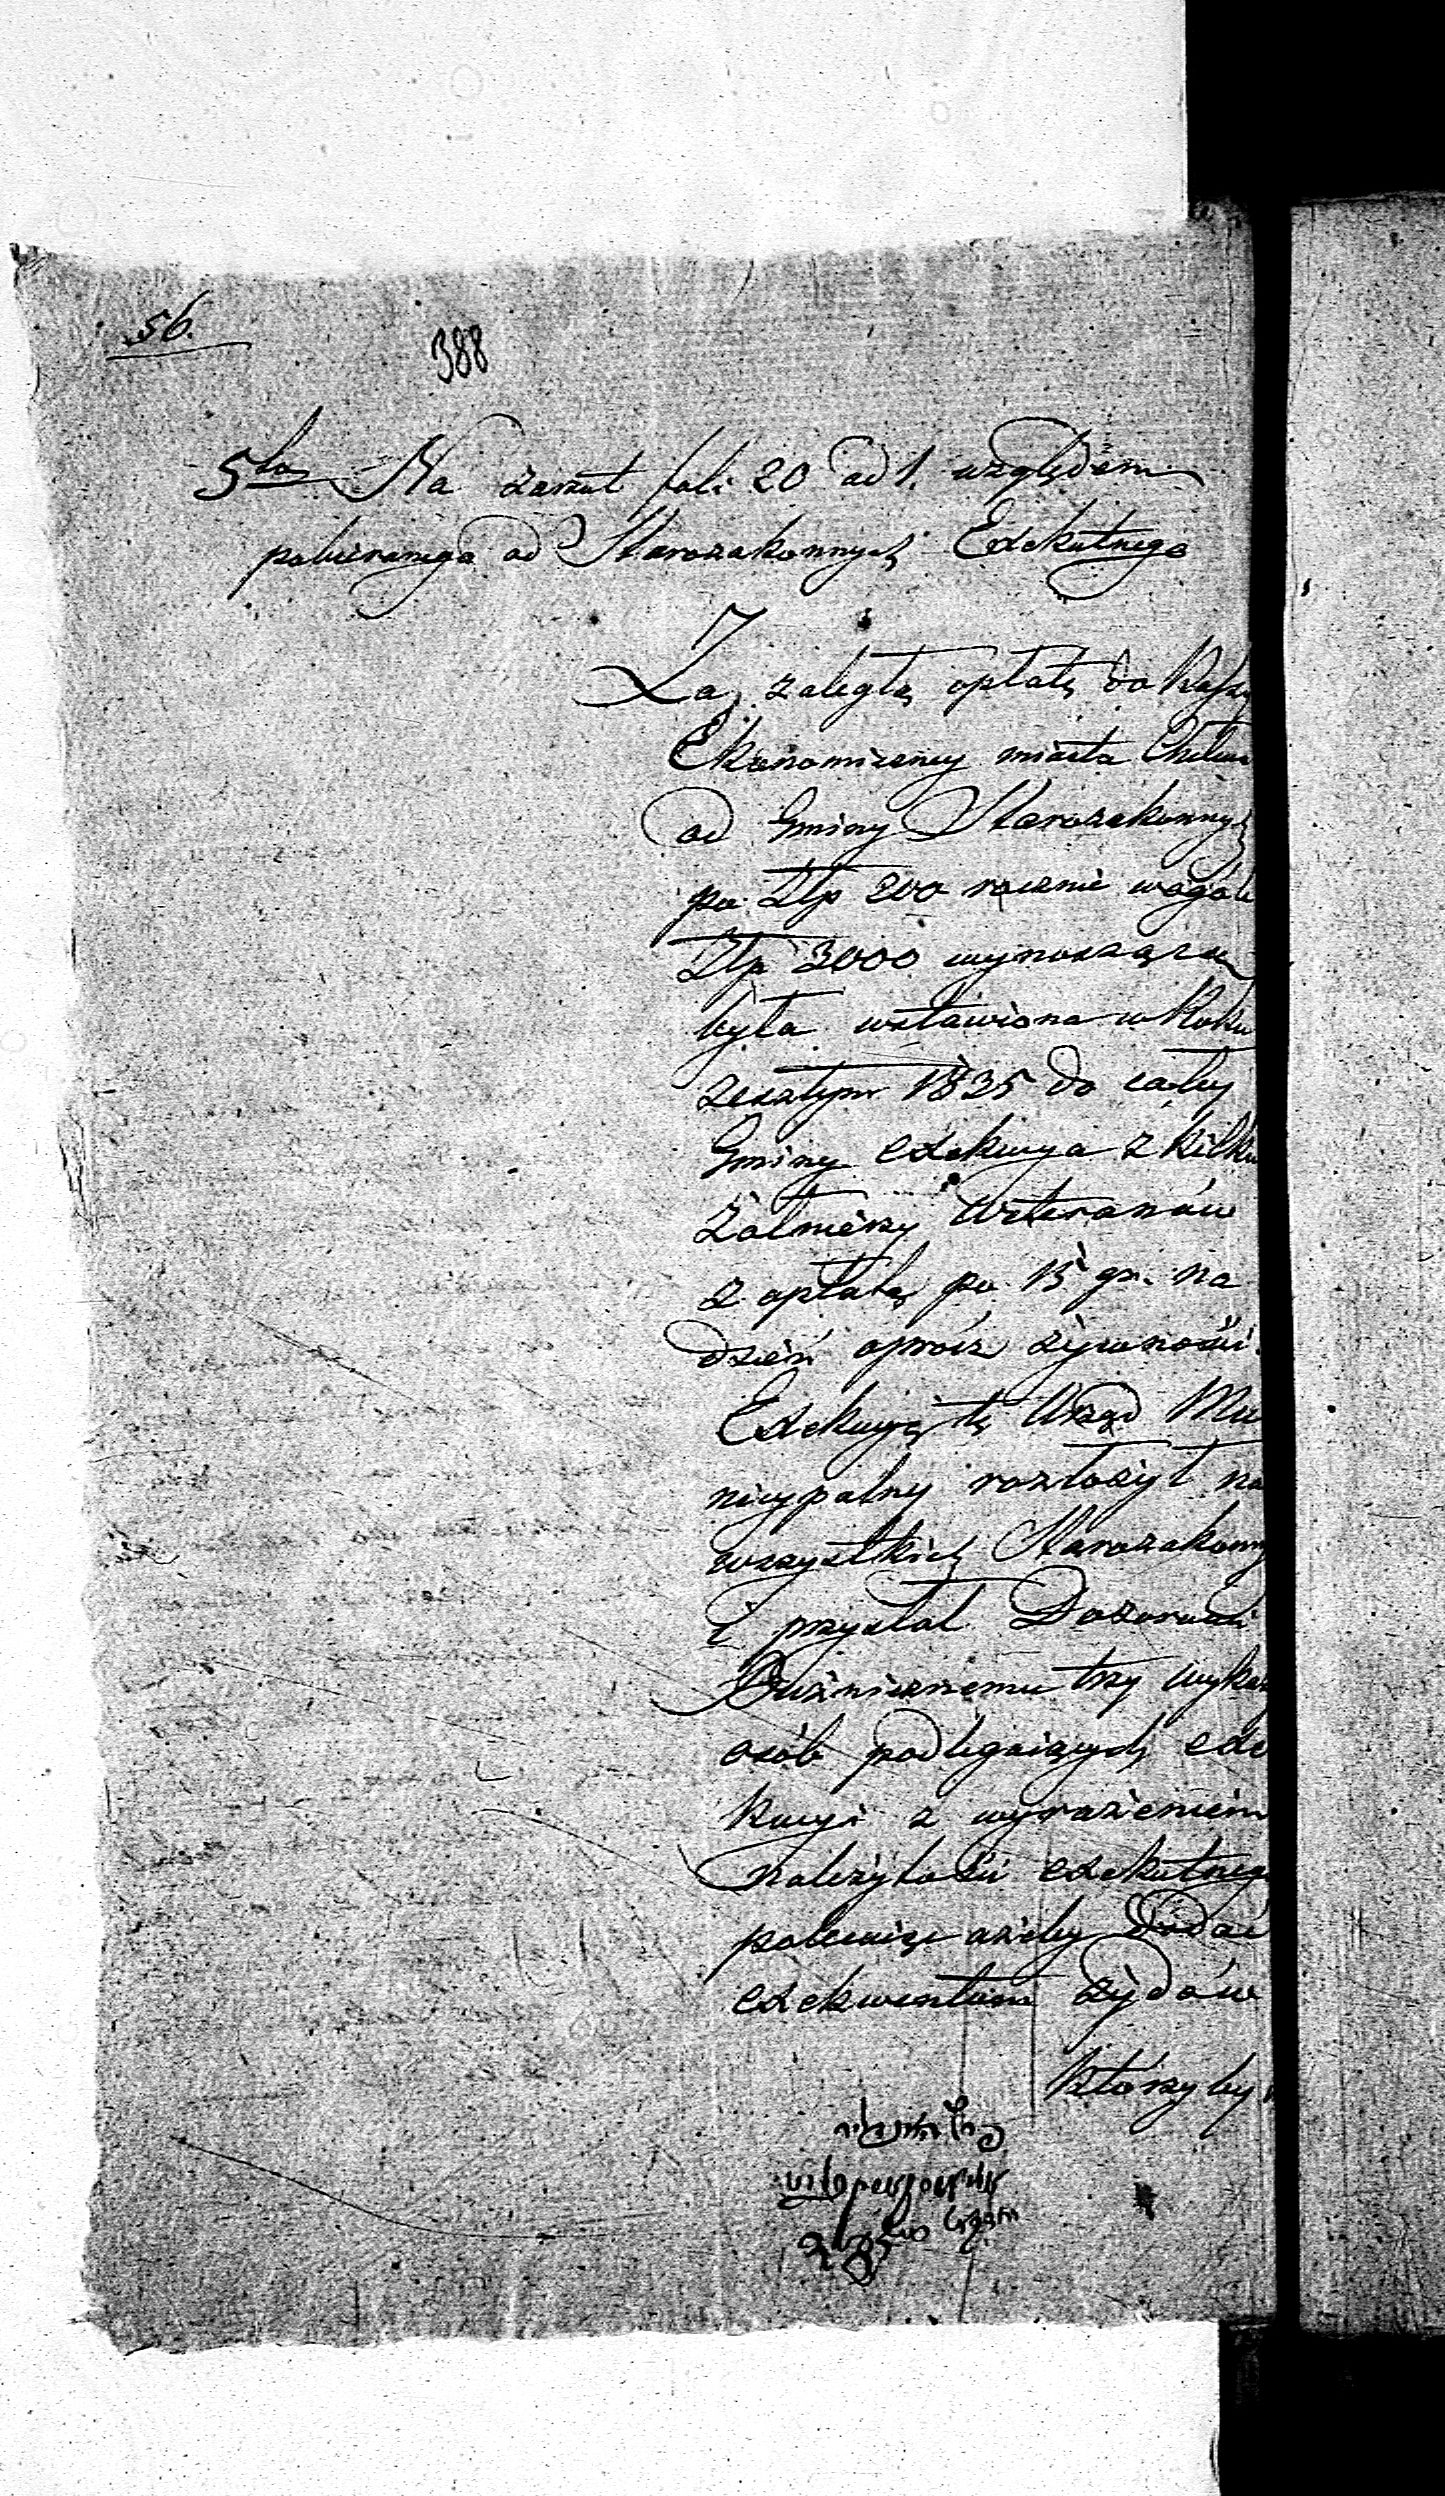 56.
388
5to Na zarzut fol: 20 ad 1. względem
pobieranego od Starozakonnych Exekutnego
Za zaległą opłatę do Kassy
Ekonomiczney miasta Chełm
od Gminy Starozakonnych
po Złp 200 rocznie wogóle
Złp 3000 wynoszącą
była wstawiona w Roku
zeszłym 1835 do całey
Gminy exekucya z kilku
Żołnierzy Weteranów
z opłatą po 15 gr. na
dzień oprócz żywności.
Exekucyą tę Urząd Mu
nicypalny rozłożył na
wszystkich Starozakonny
i przysłał Dozorowi
Bużnicznemu trzy wykaz
osób podlegaiących exe
kucyi z wyrażeniem
należytości exekutnego
polecaiąc ażeby dodać
exekwentom żydów
którzyby